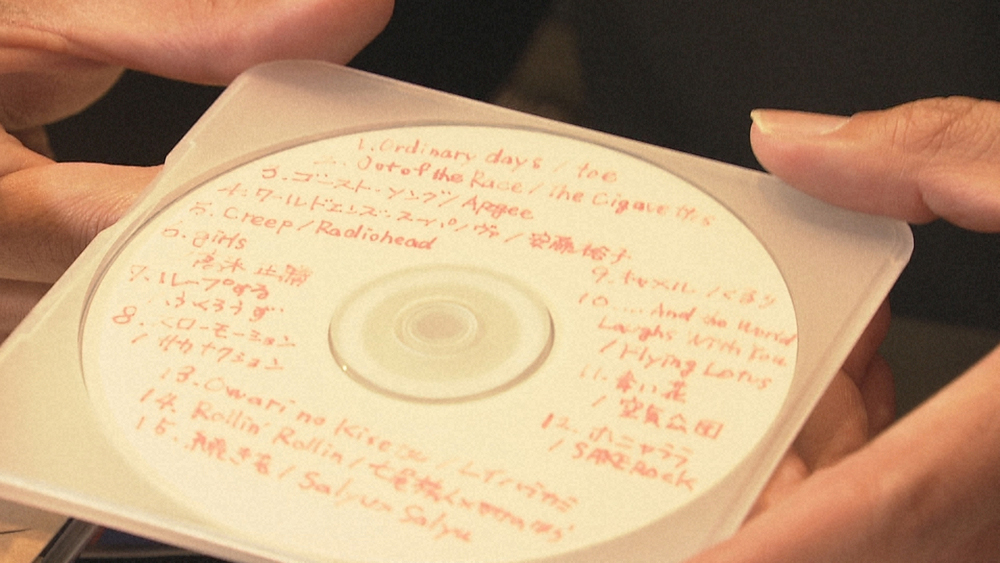 1. Ordinary days / toe
Out of the Race / the Cigavettes
3. ゴースト・ソング / Apogee
4. ワールドエンズ・スーパノヴァ / 安藤裕子
5. Creep / Radiohead
girls
7. ループする
/ ふくろうず
8. スローモーション
/ サカナクション
9. キャメル / くるり
10. ... And the World
Laughs With You
/ Flying Lotus
11. 青い花
/ 空気公団
12. ホニャララ
/ SAKEROCK
13. Owari no Kise / レイハラカミ
14. Rollin' Rollin / 七尾旅人×
15. / Salyu×Salyu